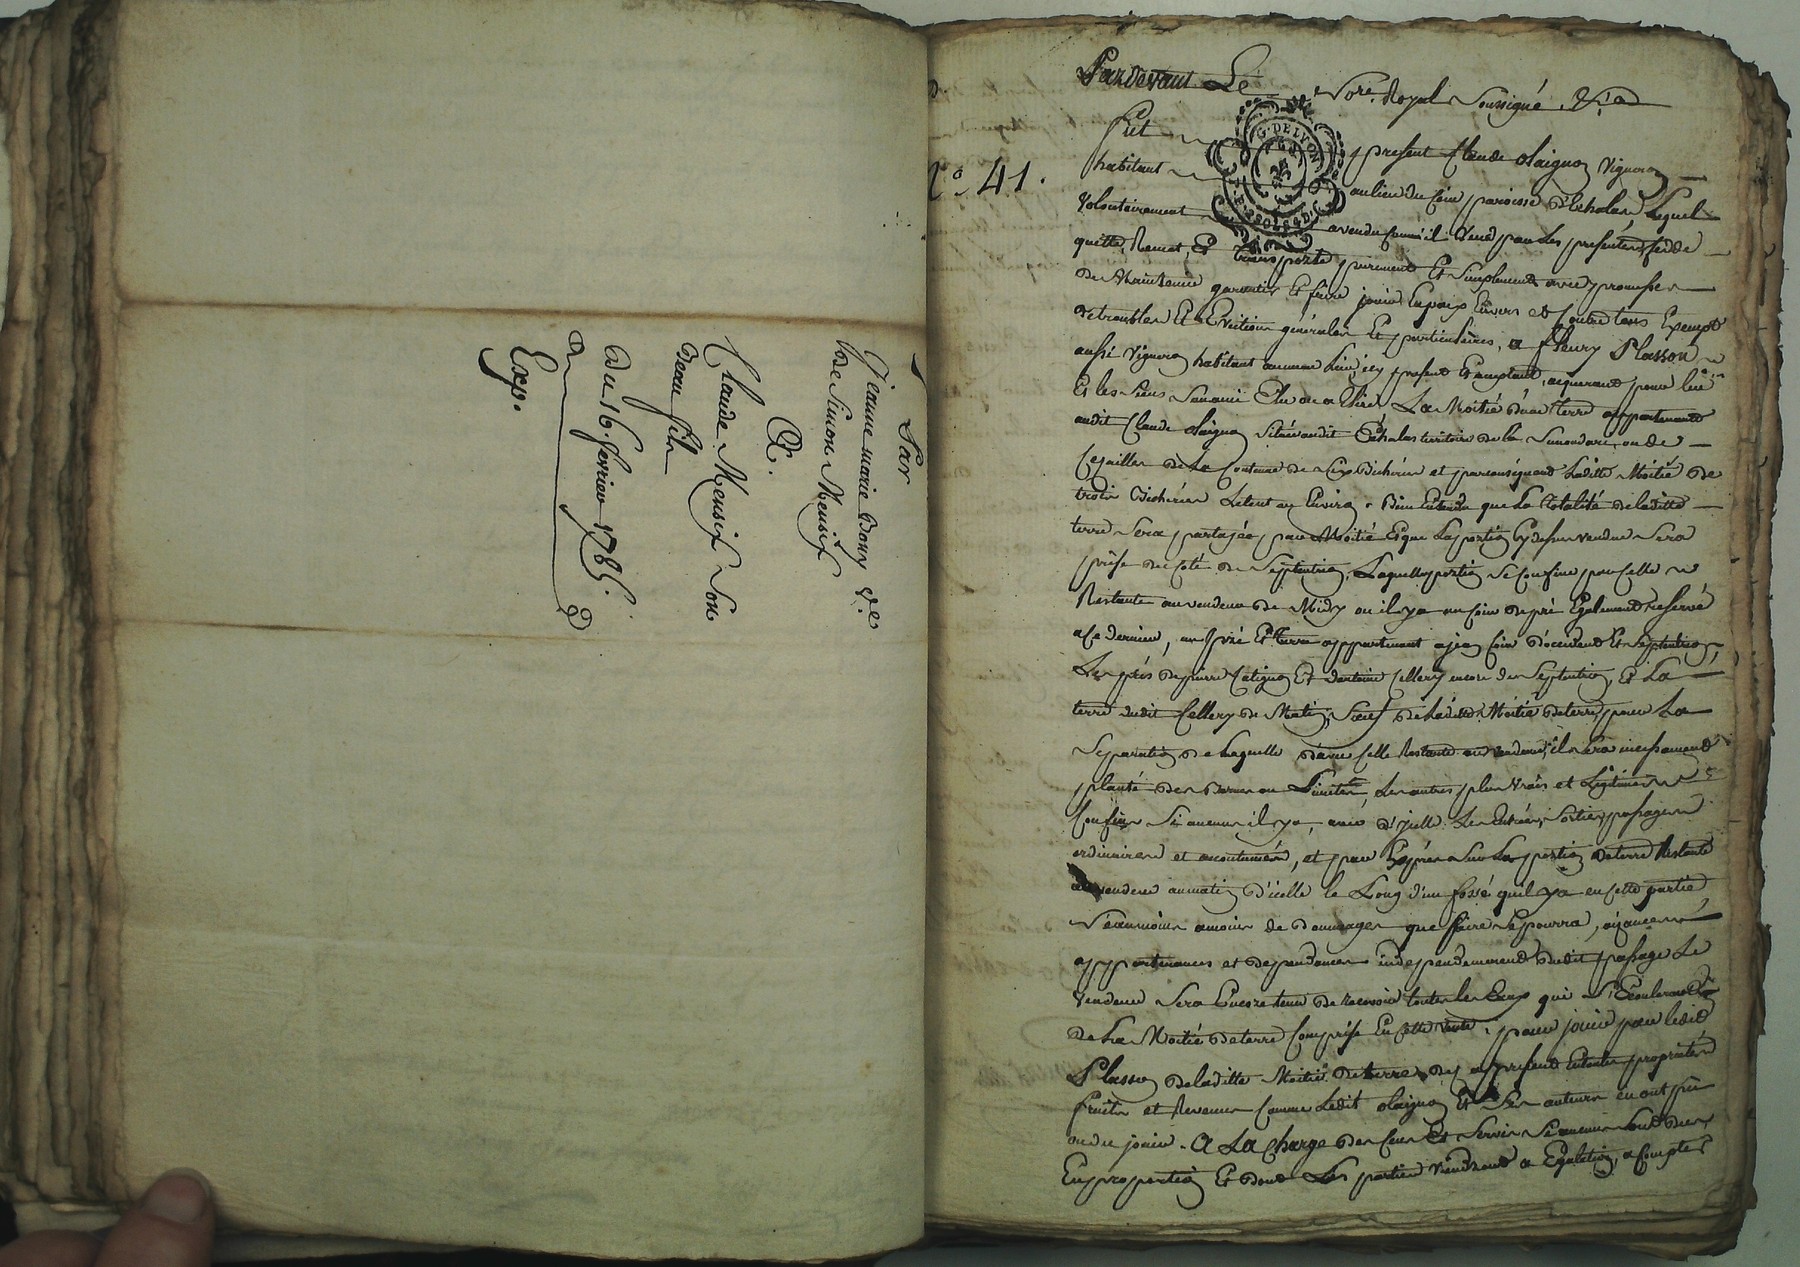 Par
Jeanne marie Bony ve.
de Simon Meusix
A.
Claude Meusix Son
Beau fils
Du 16. fevrier 1785.
Exp.
No. 41.
Pardevant Le Nore. Royal Soussigné. &a
fut present Claude vigneron
habitant au lieu du Coin paroisse d'Echalas Lequel
Volontairement a vendu comme il vend par Les presentes, cedde
quitte Remet, Et transporte purement Et Simplement avec promesse
de Maintenir garentir Et faire jouir En paix Envers et Contre tous Exempt
de troubles Et Evictions générales Et particulieres, a fleury Plasson
aussi Vigneron habitant au meme Lieu, icy present Et acceptant, aquerant pour lui
Et les Siens Son ami Elu ou a Elire La Moitié d'une terre appartenante
audit Claude Situé audit Echalas territoire de la ou de
de La Contenue de Six Bicherées et par consequent Laditte Moitié de
trois Bicherées Letout ou Environ. Bien Entendu que La totalité de laditte
terre Sera partagée par Moitié Et que La portion Cy dessus vendue Sera
prise du coté de Septentrion, Laquelle portion Se Confine par Celle
Restante au vendeur de Midy ou il y a un Coin de pré Egalement reservé
a Ce dernier, un pré Et terre appartenant a jean Coin d'occident Et Septentrion,
Les prés de pierre Et d'antoine Cellery encore de Septentrion, Et La
terre dudit Cellery de Matin, Sauf de laditte Moitié de terre, pour La
Separation de Laquelle d'avec Celle Restante au vendeur, il Sera incessament
planté des Bornes ou Limites, Les autres plus Vrais et Légitimes
Confins Si aucuns il y a, avec d'ycelle Les Entrées, Sorties, passages
ordinaires et acoutumés, et par Exprès Sur La portion de terre Restante
au vendeur au matin d'icelle le Long d'un fossé qu'il y a en Cette partie
Néanmoins a moins de dommages que faire Se pourra, aizances
appartenances et dependances independemment dudit passage Le
Vendeur Sera Encore tenu de recevoir toutes les Eaux qui S'Ecouleront
de La Moitié de terre Comprise En Cette vente, pour jouir par ledit
Plasson de laditte Moitié de terre dès a present En toutes proprietés
fruits et Revenus Comme Ledit Et Ses auteurs en ont pu
ou du jouir. A La Charge des Cens Et Servis Si aucuns Sont dus
En proportion Et dont Les parties viendront a Egalation, a Compter